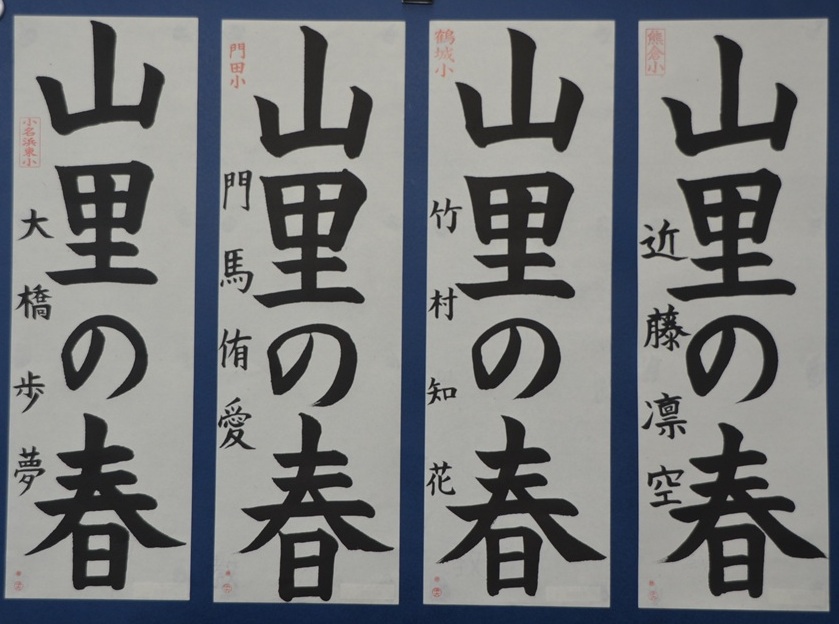 山里の春
小名浜東小
大橋歩夢
山里の春
門田小
門馬侑愛
山里の春
鶴城小
竹村知花
山里の春
熊倉小
近藤凛空